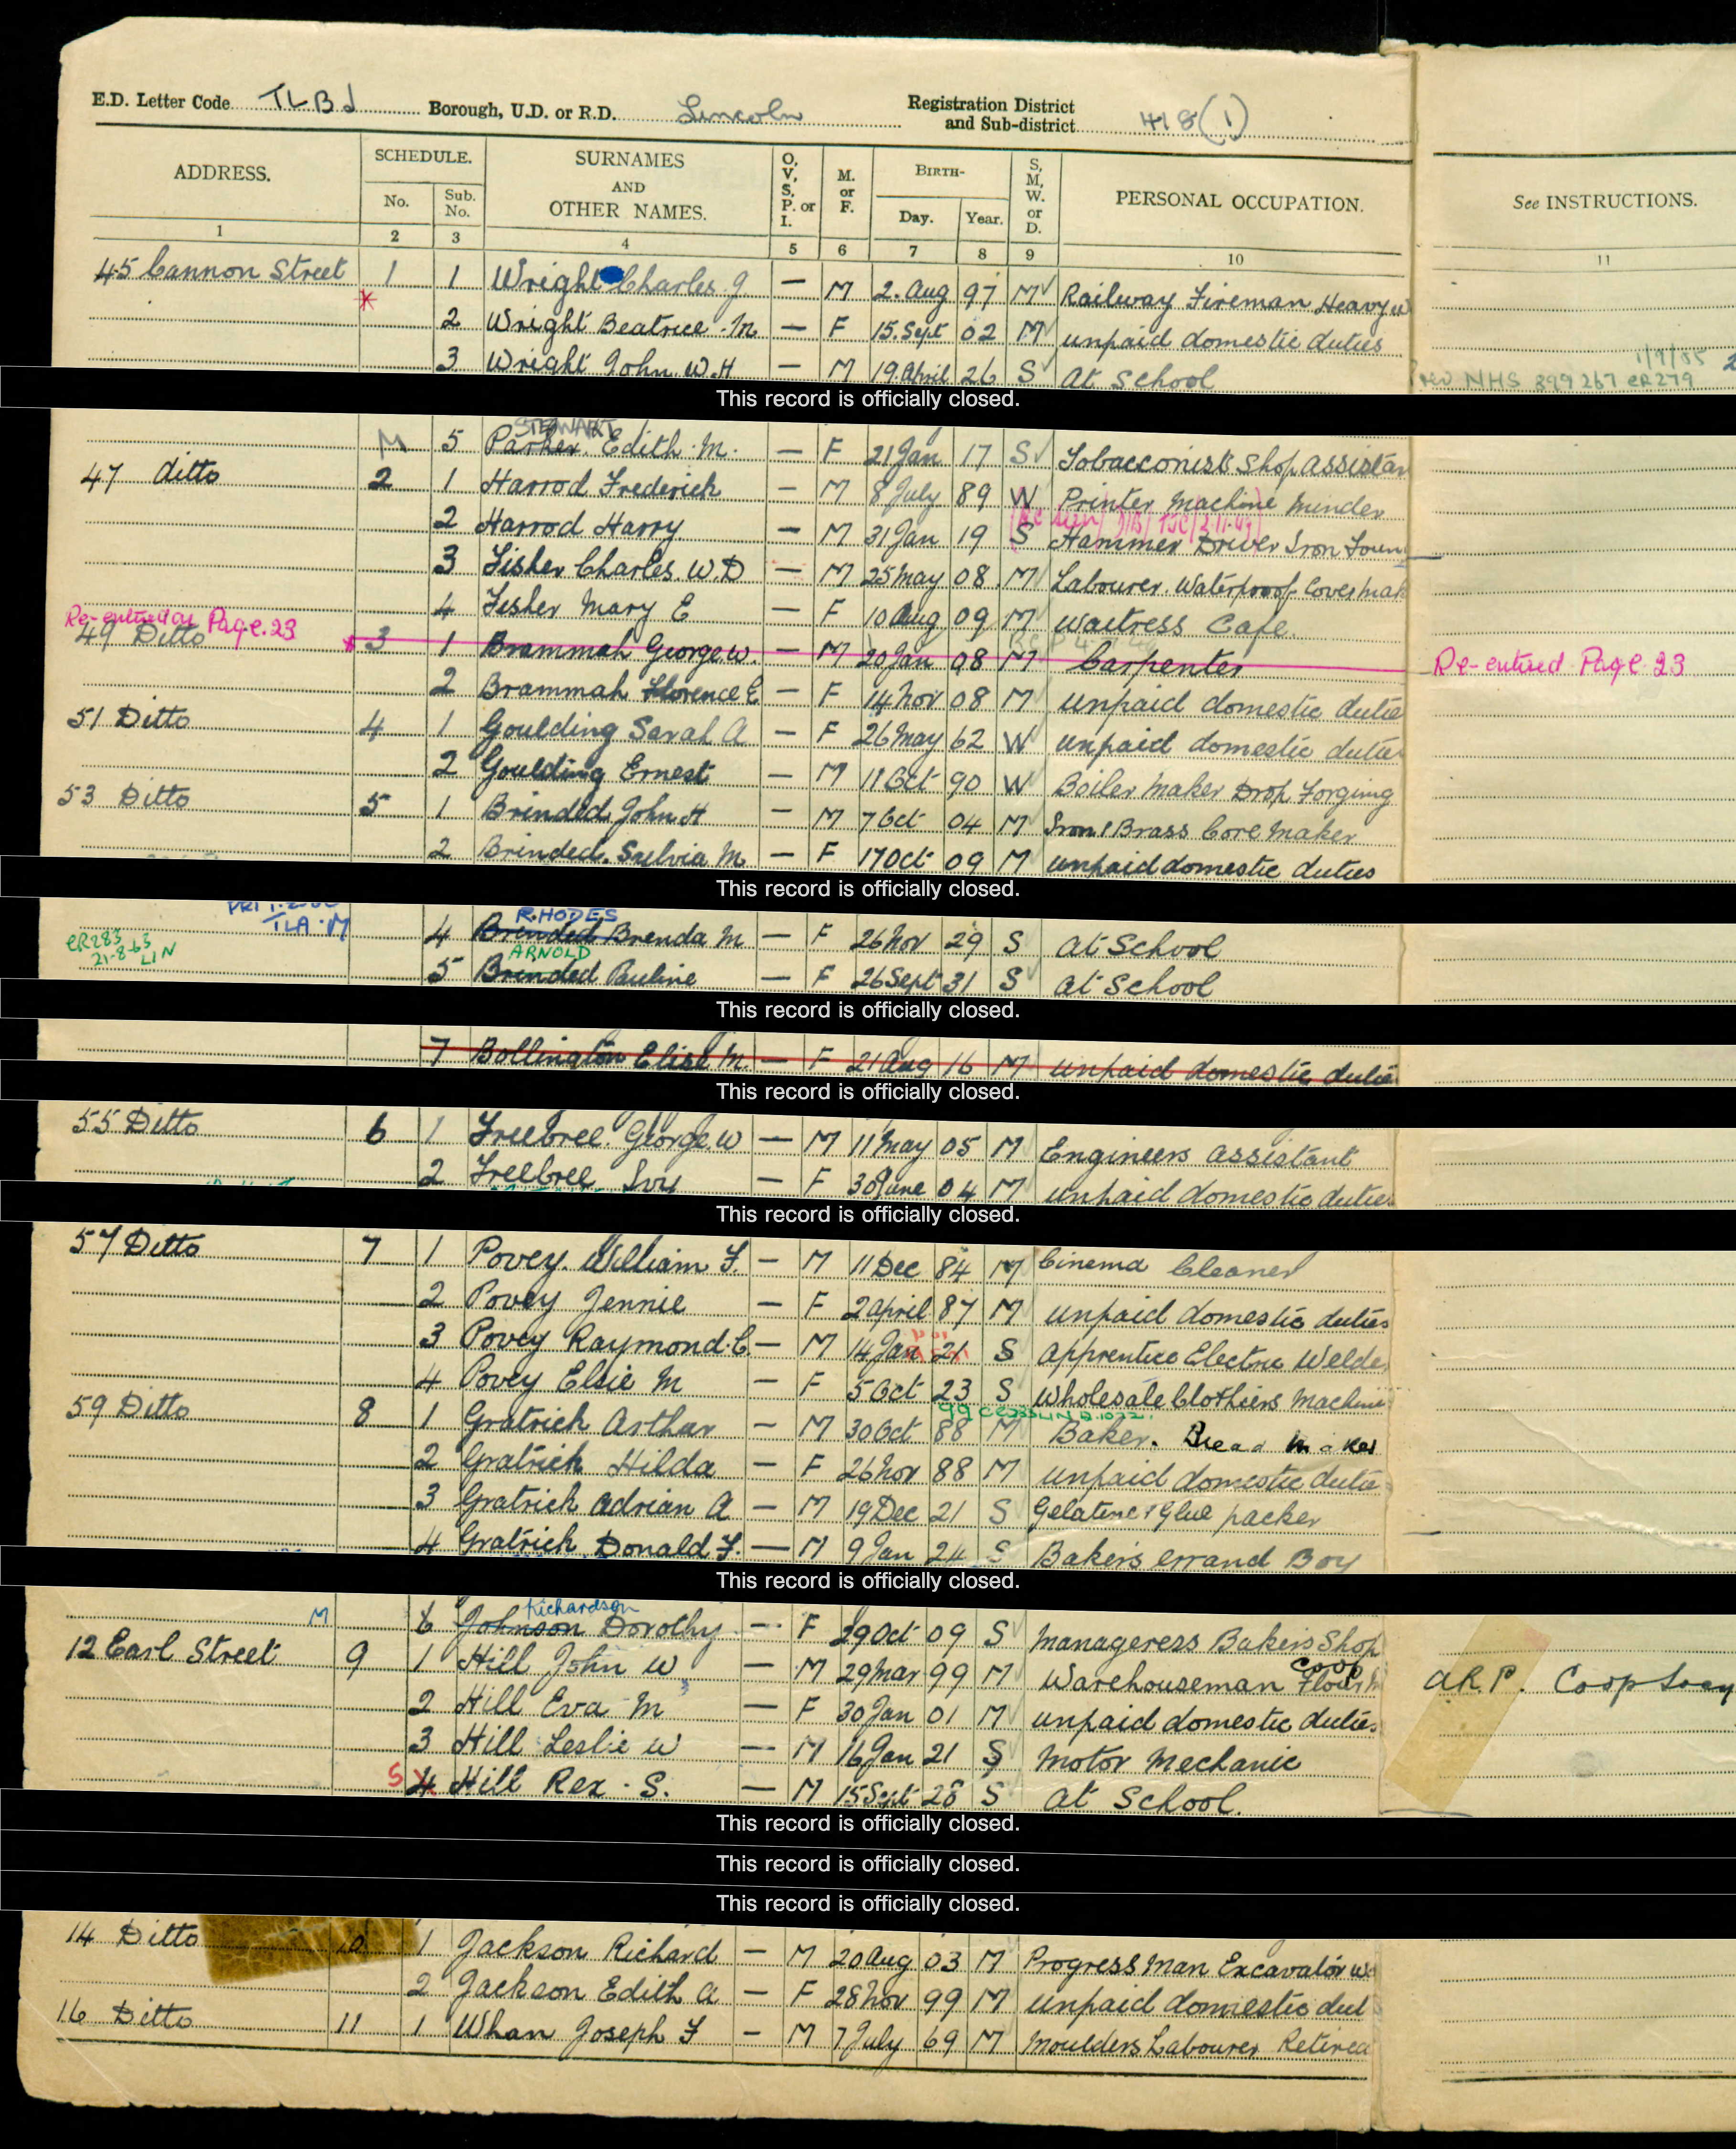 E.D. Letter Code TLBJ Borough, U.D. or R.D. Lincoln Registration District and Sub-district 418(1)
ADDRESS. SCHEDULE. No. Sub. No. SURNAMES AND OTHER NAMES. O, V, S, P. or I. M. or F. BIRTH- Day. Year. S, M, W. or D. PERSONAL OCCUPATION. See INSTRUCTIONS.
1 2 3 4 5 6 7 8 9 10 11
45 Cannon Street 1 1 Wright Charles J — M 2. Aug 97 M Railway Fireman Heavy
2 Wright Beatrice M — F 15. Sept 02 M unpaid domestic duties
3 Wright John W.H — M 19 April 26 S At School NHS 399267 CR279
This record is officially closed.
STEWART
M 5 Parker. Edith M. — F 21 Jan 17 S Tobacconists Shop Assistan
47 ditto 2 1 Harrod Frederick — M 8 July 89 W Printer Machine Minder
2 Harrod Harry — M 31 Jan 19 S Hammer Driver Iron Foun
3 Fisher Charles W.D — M 25 May 08 M Labourer. Waterproof Cover Mak
4 Fisher Mary E — F 10 Aug 09 M Waitress Cafe.
Re-entered on Page. 23
49 Ditto 3 1 Brammah George W. — M 20 Jan 08 M Carpenter Re-entered Page 23
2 Brammah Florence E — F 14 Nov 08 M unpaid domestic dutie
51 Ditto 4 1 Goulding Sarah A — F 26 May 62 W unpaid domestic dutie
2 Goulding Ernest — M 11 Oct 90 W Boiler Maker Drop Forging
53 Ditto 5 1 Brinded John H — M 7 Oct 04 M Iron & Brass Core Maker
2 Brinded. Sylvia M — F 17 Oct 09 M unpaid domestic duties
This record is officially closed.
RHODES
TLA. M 4 Brinded Brenda M — F 26 Nov 29 S At School
CR283 21-8-63 LIN ARNOLD
5 Brinded Pauline — F 26 Sept 31 S at School
This record is officially closed.
7 Bollington Elise M. — F 21 Aug 16 M unpaid domestic dutie
This record is officially closed.
55 Ditto 6 1 Freebree. George. W — M 11 May 05 M Engineers Assistant
2 Freebree Ivy — F 30 June 04 M unpaid domestic duties
This record is officially closed.
57 Ditto 7 1 Povey. William F. — M 11 Dec 84 M Cinema Cleaner
2 Povey Jennie — F 2 April 87 M unpaid domestic duties
3 Povey Raymond. C. — M 14 Jan 21 S Apprentice Electric Welde
4 Povey Elsie M — F 5 Oct 23 S Wholesale Clothiers Machini
59 Ditto 8 1 Gratrich Arthur — M 30 Oct 88 M Baker. Bread Maker
2 Gratrich Hilda — F 26 Nov 88 M unpaid domestic dutie
3 Gratrich Adrian A — M 19 Dec 21 S Gelatine & Glue packer
4 Gratrich Donald F. — M 9 Jan 24 S Bakers errand Boy
This record is officially closed.
Richardson
M 6 Johnson Dorothy — F 29 Oct 09 S Manageress Bakers Shop
12 Earl Street 9 1 Hill John W — M 29 Mar 99 M Warehouseman Flour A.R.P.
2 Hill Eva M — F 30 Jan 01 M unpaid domestic duties
3 Hill Leslie W — M 16 Jan 21 S Motor Mechanic
5 4 Hill Rex. S. — M 15 Sept 28 S At School.
This record is officially closed.
This record is officially closed.
This record is officially closed.
14 Ditto 10 1 Jackson Richard — M 20 Aug 03 M Progress Man Excavator
2 Jackson Edith A — F 28 Nov 99 M unpaid domestic dut
16 Ditto 11 1 Whan Joseph F — M 7 July 69 M Moulders Labourer Retired